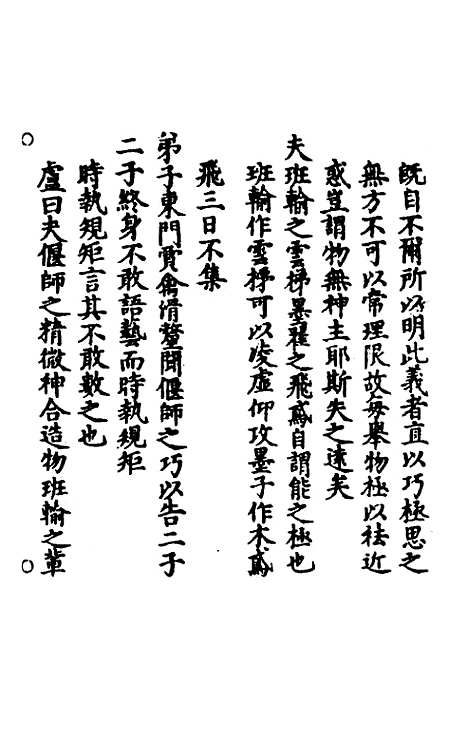 既自不爾所以明此義者直以巧極思之
無方不可以常理限故每舉物極以袪近
惑豈謂物無神主耶斯失之遠矣
夫班輸之雲梯墨翟之飛鳶自謂能之極也
班輸作雲梯可以凌虛仰攻墨子作木鳶
飛三日不集
弟子東門賈禽滑釐聞偃師之巧以告二子
二子終身不敢語藝而時執規矩
時執規矩言其不敢數之也
盧曰夫偃師之精微神合造物班輸之輩